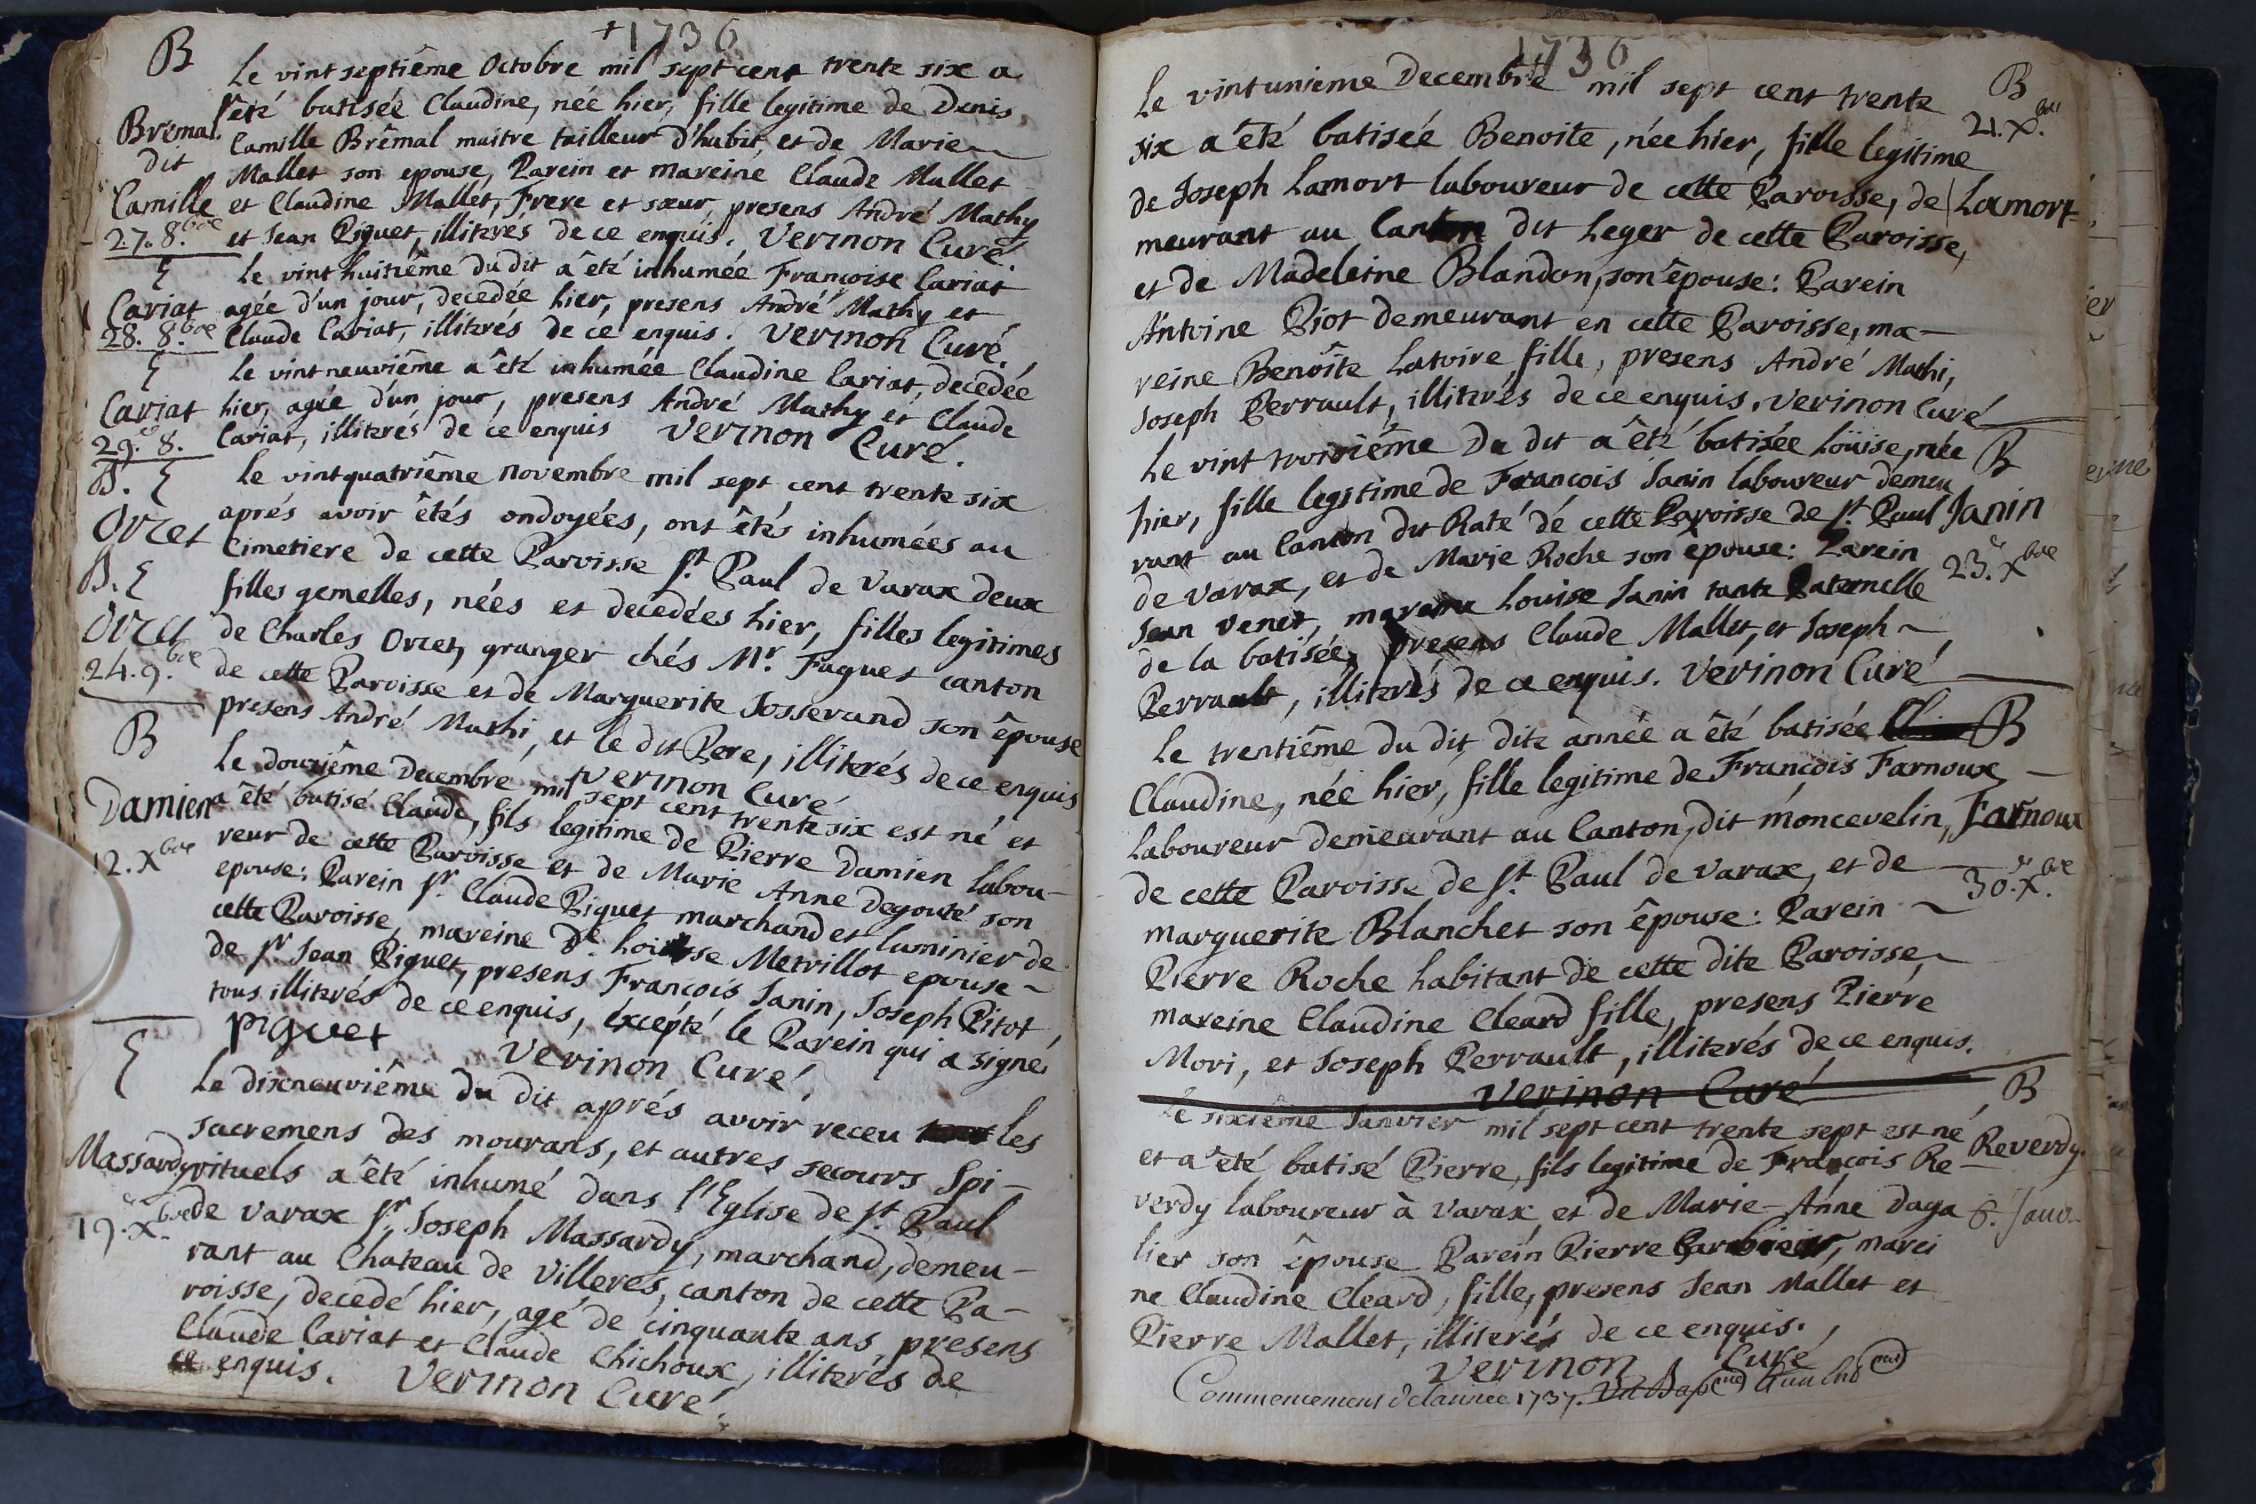 +1736
B
Le vint septiême Octobre mil sept cent trente six a
êté batisée Claudine, née hier, fille legitime de Denis
Bremal
dit
Camille
27. 8.bre
Camille Brêmal maitre tailleur d'habit, et de Marie
Mallet son epouse, Parein et mareine Claude Mallet
et Claudine Mallet, Frere et sœur, presens André Mathy
et Jean Piguet, illiterés de ce enquis. Verinon Curé.
E
Cariat
28. 8.bre
Le vint huitiême du dit a êté inhumée Francoise Cariat
agée d'un jour, decedée hier, presens André Mathy et
Claude Cariat, illiterés de ce enquis. Verinon Curé.
E
Cariat
29.e 8.
Le vint neuviême a êté inhumée Claudine Cariat, decedée
hier, agée d'un jour, presens André Mathy et Claude
Cariat, illiterés de ce enquis Verinon Curé.
B. E
Orcet
B. E
Orcet
24. 9.bre
Le vint quatriême novembre mil sept cent trente six
aprés avoir êtés ondoyées, ont êtés inhumées au
Cimetiere de cette Paroisse St. Paul de Varax deux
filles gemelles, nées et decedées hier, filles legitimes
de Charles Orcet, granger chés Mr. Fagues canton
de cette Paroisse et de Marguerite Josserand son êpouse
presens André Mathi, et le dit Pere, illiterés de ce enquis
Verinon Curé
B
Damien
12. Xbre
Le douziême Decembre mil sept cent trente six est né et
a êté batisé Claude, fils legitime de Pierre Damien labou-
reur de cette Paroisse et de Marie Anne Degouté son
epouse; Parein Sr. Claude Piguet marchand et luminier de
cette Paroisse, mareine De. Loisse Metrillot epouse
de Sr Jean Piguet, presens François Janin, Joseph Pitot,
tous illiterés de ce enquis, éxcépté le Parein qui a signé
piguet
Verinon Curé
E
Massardy
19.e Xbre
Le dixneuviême du dit aprés avoir receu les
sacremens des mourans, et autres secours Spi-
rituels a êté inhumé dans l'Eglise de St. Paul
de Varax Sr. Joseph Massardy, marchand, demeu-
rant au Chateau de Villeres, canton de cette Pa-
roisse, decedé hier, agé de cinquante ans, presens
Claude Cariat et Claude Chichoux, illiterés de
ce enquis. Verinon Curé.
1736
B
21. Xbre
Lamort
Le vint unieme Decembre mil sept cent trente
six a êté batisée Benoite, née hier, fille legitime
de Joseph Lamort laboureur de cette Paroisse, de
meurant au Canton dit Leger de cette Paroisse,
et de Madeleine Blandon, son êpouse: Parein
Antoine Piot demeurant en cette Paroisse, ma-
reine Benoîte Latoire fille, presens André Mathi,
Joseph Perrault, illiterés de ce enquis, Verinon Curé
B
Janin
23.e Xbre
Le vint troisiême du dit a êté batisée Loüise, née
hier, fille legitime de François Janin laboureur demeu
rant au Canton dit Raté de cette Paroisse de St. Paul
de Varax, et de Marie Roche son êpouse: Parein
Jean Venet, mareine Louise Janin tante Paternelle
de la batisée, presens Claude Mallet, et Joseph
Perrault, illiterés de ce enquis. Verinon Curé
B
Farnoux
30.e Xbre
Le trentiême du dit, dite année a êté batisée
Claudine, née hier, fille legitime de François Farnoux,
laboureur demeurant au Canton, dit moncevelin,
de cette Paroisse de St. Paul de Varax, et de
marguerite Blanchet son êpouse: Parein
Pierre Roche habitant de cette dite Paroisse,
mareine Claudine Cleard fille, presens Pierre
Mori, et Joseph Perrault, illiterés de ce enquis.
Verinon Curé
B
Reverdy.
6. Janv.
Le sixiême Janvier mil sept cent trente sept est né
et a êté batisé Pierre, fils legitime de François Re-
verdy laboureur à Varax et de Marie-Anne Daga
lier son êpouse Parein Pierre, marei
ne Claudine Cleard, fille, presens Jean Mallet et
Pierre Mallet, illiterés de ce enquis.
Verinon Curé
Commencement de lannee 1737.